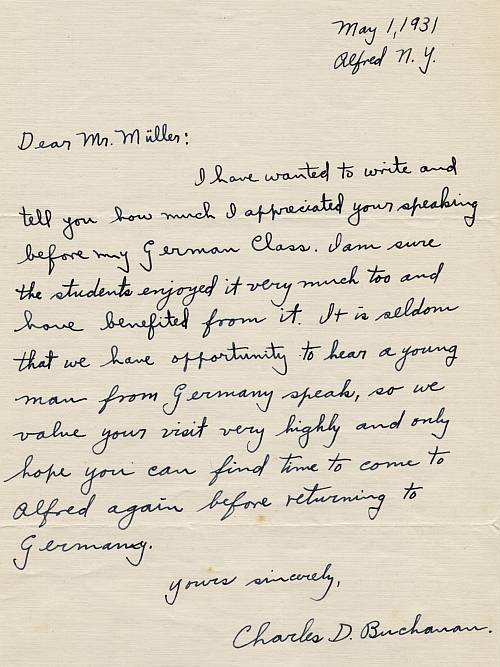 May 1, 1931
Alfred N. Y.
Dear Mr. Müller:
I have wanted to write and
tell you how much I appreciated your speaking
before my German Class. I am sure
the students enjoyed it very much too and
have benefited from it. It is seldom
that we have opportunity to hear a young
man from Germany speak, so we
value your visit very highly and only
hope you can find time to come to
Alfred again before returning to
Germany.
Yours sincerely,
Charles D. Buchanan.